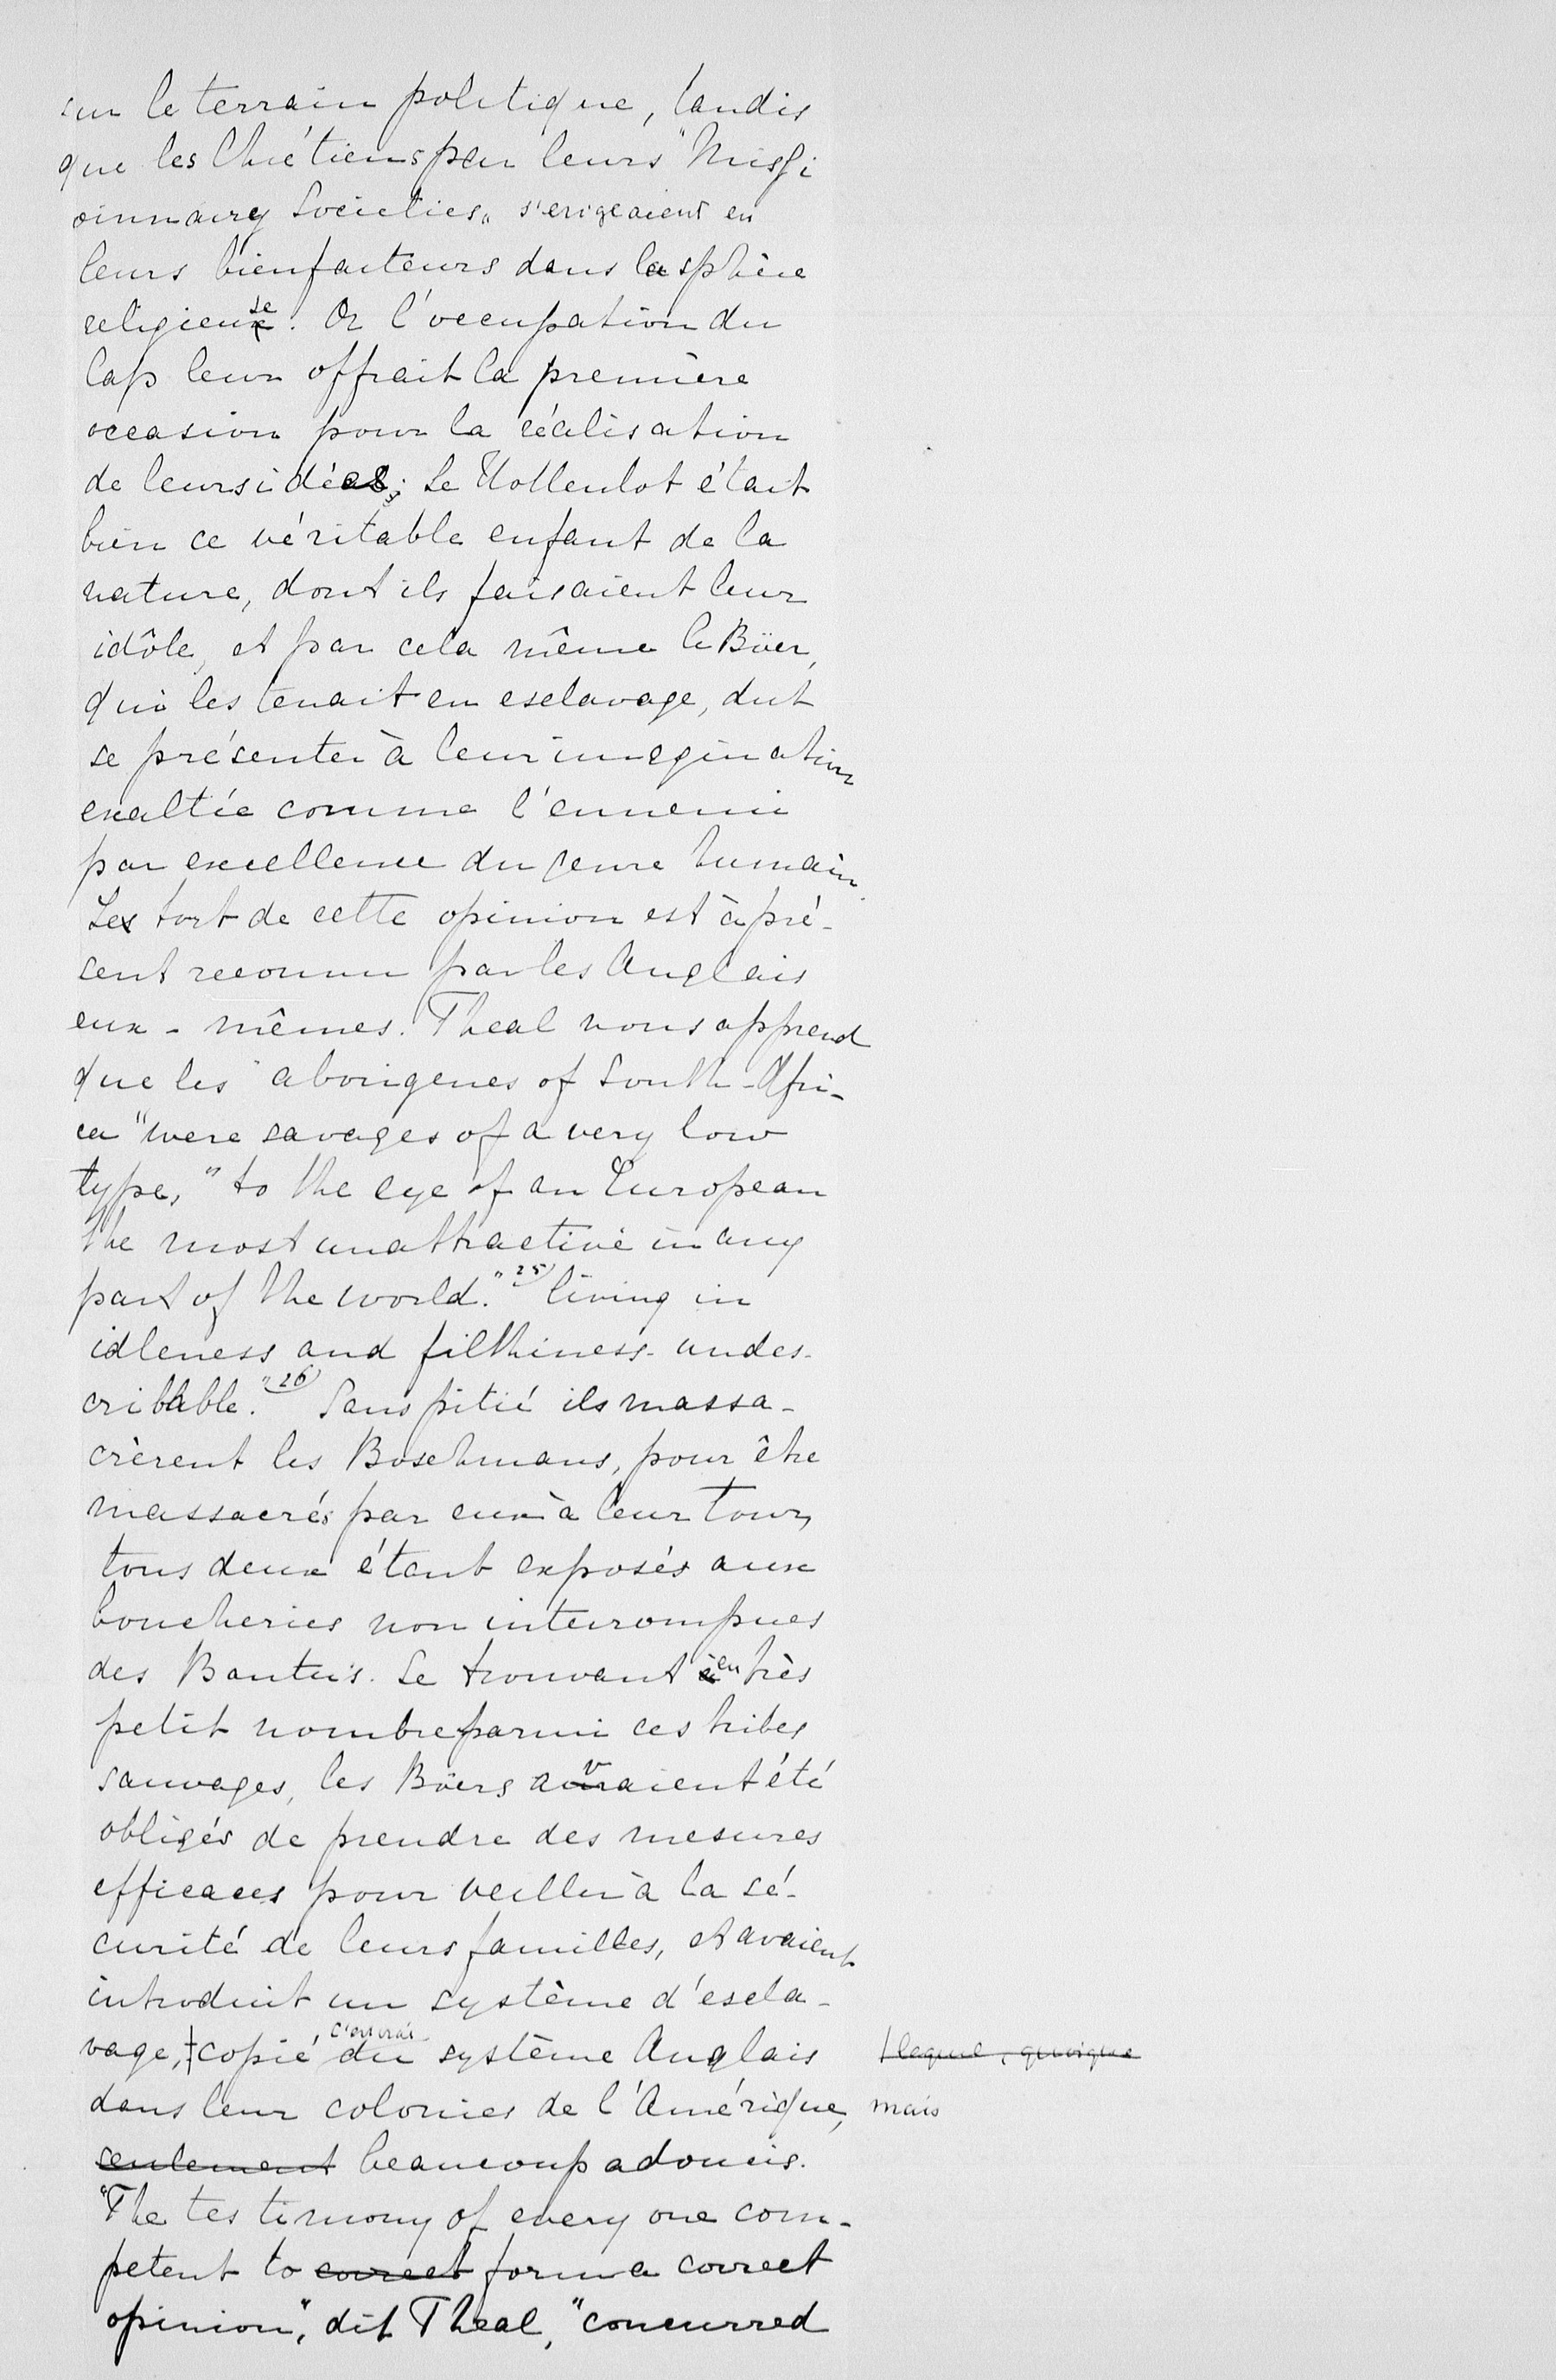 sur le terrain politique, tandis
que les Chrétiens par leurs "Missi
oinnairy Societies" s'erigeaient en
leurs bienfaiteurs dans la sphère
religieuse. Or l'occupation du
Cap leur offrait la première
occasion pour la réalisation
de leurs idées; Le Hottentot était
bien ce véritable enfant de la
nature, dont ils faisaient leur
idôle, et par cela même le Böer,
qui les tenait en esclavage, dut
se présenter à leur imagination
exaltée comme l'ennemi
par excellence du genre humain.
Le tort de cette opinion est à pré-
sent reconnu par les Anglais
eux-mêmes. Theal nous apprend
que les "aborigenes of South-Afri-
ca "were savages of a very low
type," to the eye of an European
the most unattractive in any
part of the world." 25) living in
idleness and filthiness undes-
cribable." 26) Sans pitié ils massa-
crèrent les Boschmans, pour être
massacrés par eux à leur tour,
tous deux étant exposés aux
boucheries non interrompues
des Bantu's. Se trouvant en très
petit nombre parmi ces tribes
sauvages, les Böers avaient été
obligés de prendre des mesures
efficaces pour veiller à la sé-
curité de leurs familles, et avaient
introduit un système d'escla-
vage, copié, c'est vrai du système Anglais lequel, quoique
dans leur colonies de l'Amérique, mais
seulement beaucoup adoucis.
"The testimony of every one com-
petent to correct form a correct
opinion", dit Theal, "concurred